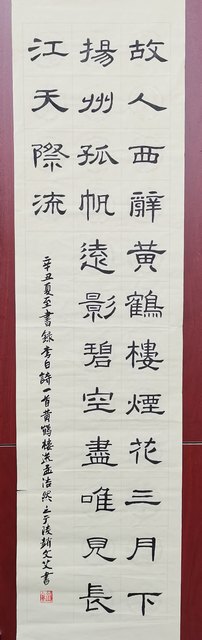 故人西辭黃鶴樓煙花三月下
揚州孤帆遠影碧空盡唯見長
江天際流
辛丑夏至書錄李白詩一首黃鶴樓送孟浩然之广陵趙文艾書